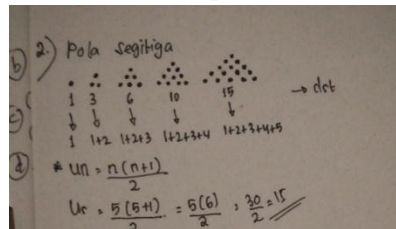 b) 2.) Pola Segitiga
1 3 6 10 15 → dst
↓ ↓ ↓ ↓ ↓
1 1+2 1+2+3 1+2+3+4 1+2+3+4+5
c)
d) * Un = n(n+1)/2
U5 = 5(5+1)/2 = 5(6)/2 = 30/2 = 15